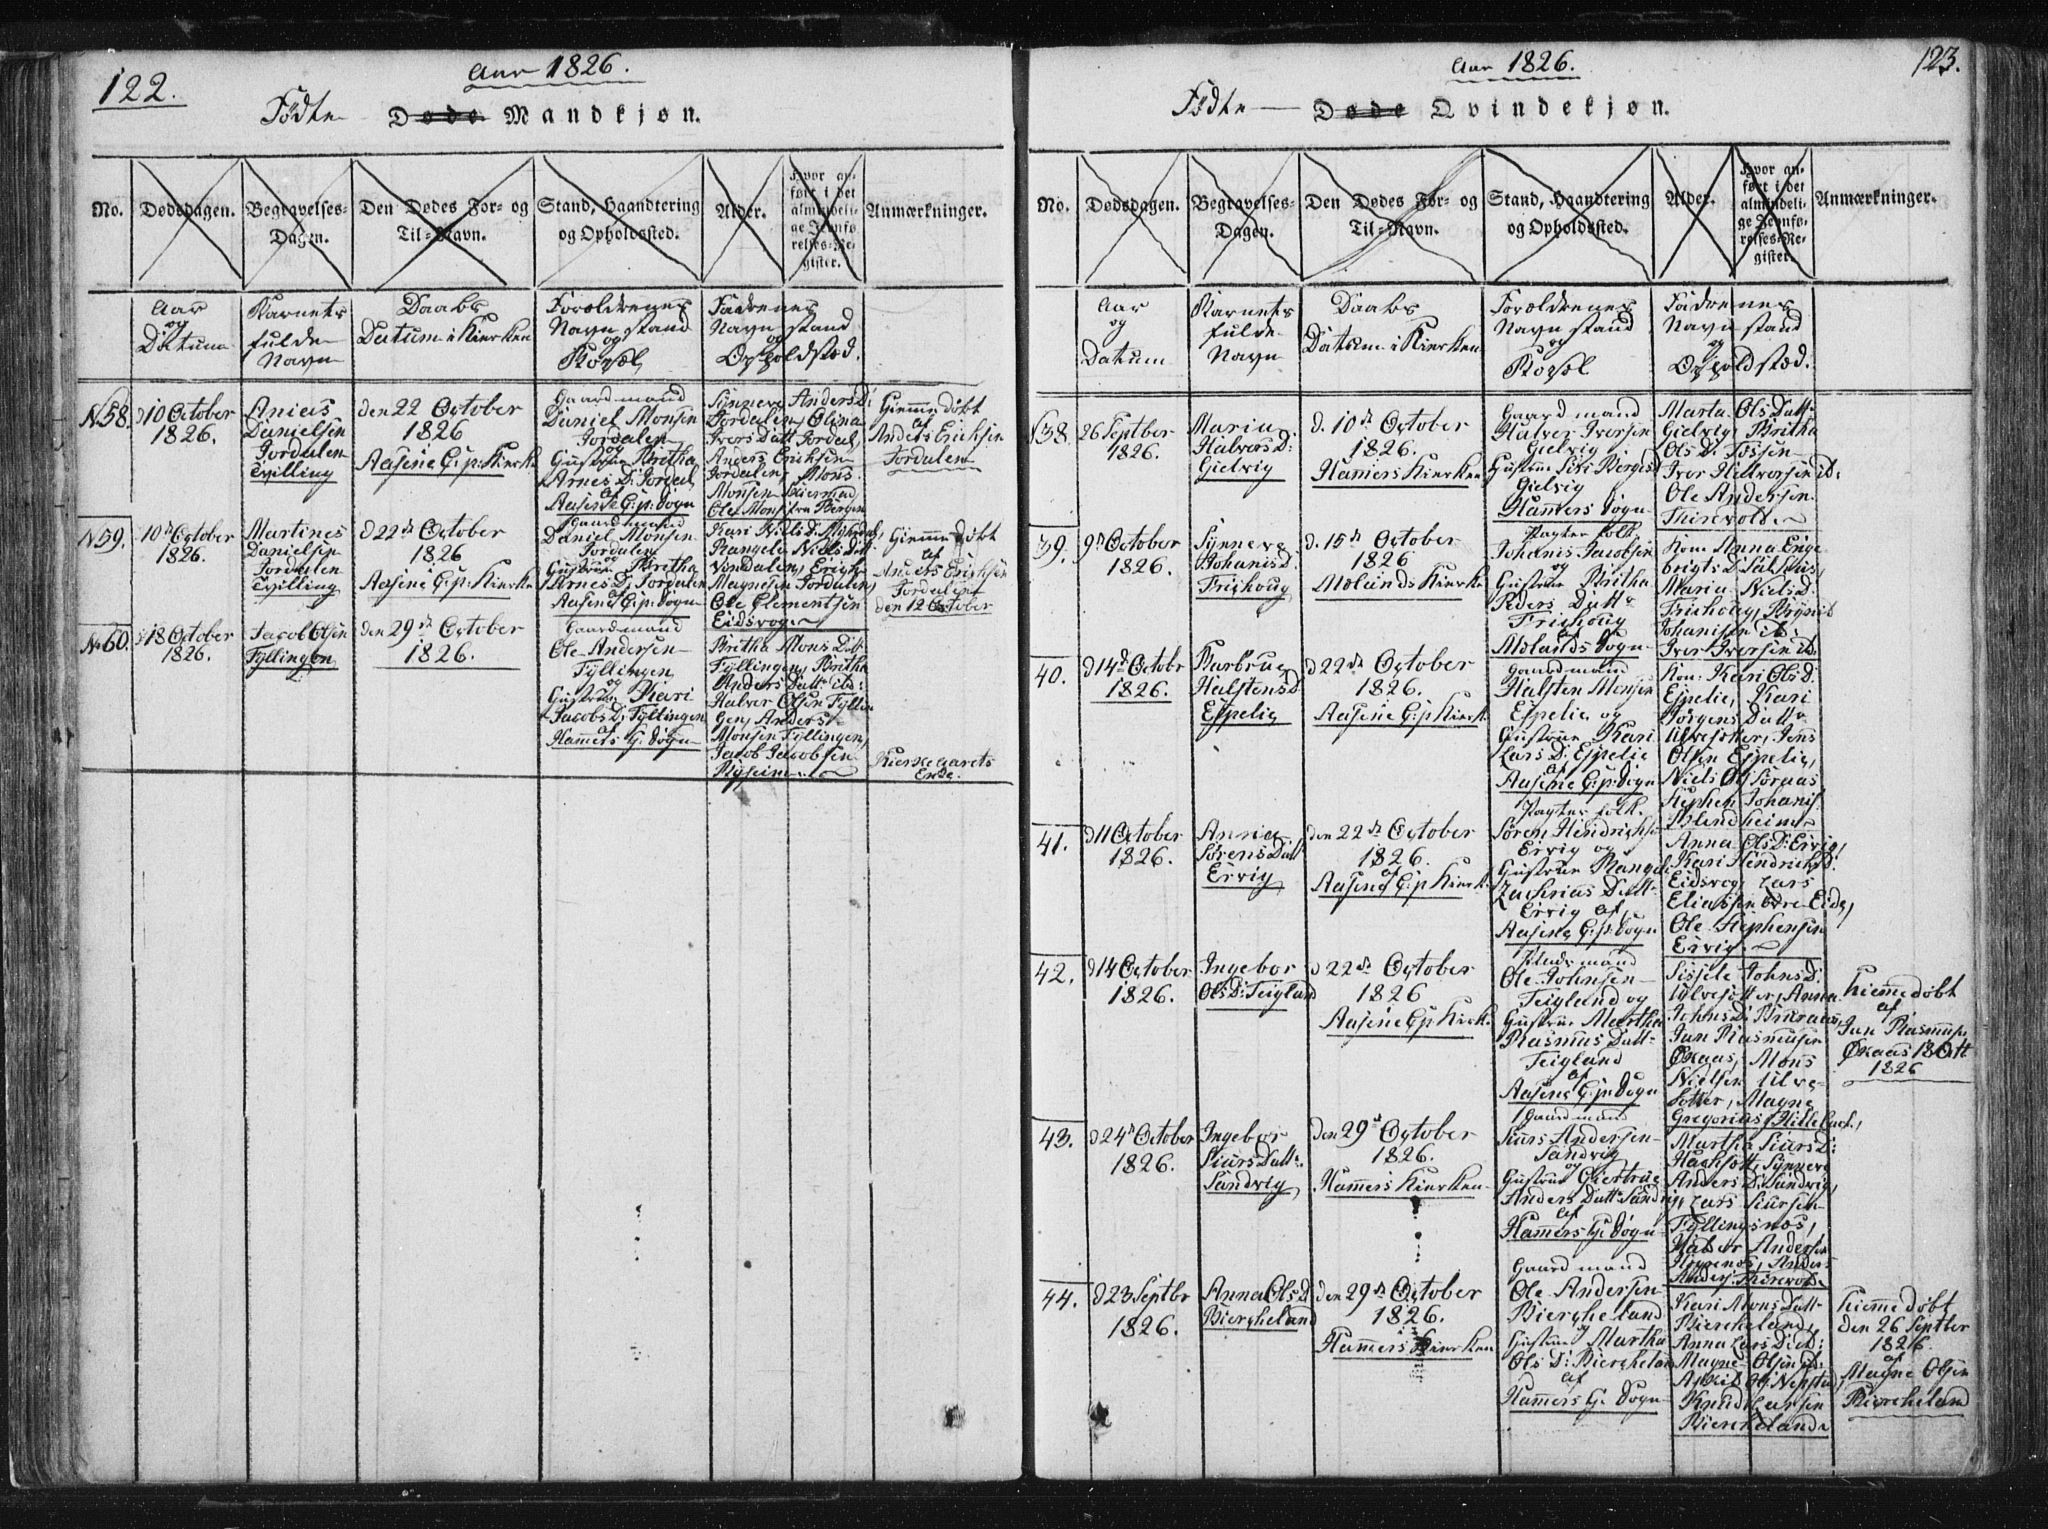 122.
Aar 1826.
Fødte Døde Mandkjøn.
No.
Dødsdagen.
Begravelses-
Dagen.
Den Dødes For- og
Til-Navn.
Stand, Haandtering
og Opholdssted.
Alder.
Hvor an-
ført i det
almindeli-
ge Jevnfø-
relses-Re-
gister.
Anmærkninger.
Aar
og
Datum
Barnets
fulde
Navn
Daabs
Datum i Kierken
Forældrenes
Navn stand
og
Bopæl
Fadrenes
Navn stand
og
Opholdstæd.
N58.
d10 October
1826.
Danielsen
Jordalen
Tvilling
den 22 October
1826
Aasene G:p: Kierke
Gaardmand
Daniel Monsen
Jordalen
og
Gustrue Britha
Arnes D: Jordal
af
Aasene G:p: Sogn
Synneve Anders D:
Jordalen, Olina
Ivers Datt Jordal,
Anders Erichsen
Jordalen, Mons
Monsen
Ole Mons fra Bergen
Giemme døbt
af
Anders Erichsen
Jordalen
N59.
10d October
1826.
Martines
Danielsen
Jordalen
Tvilling
d22de October
1826
Aasene G:p: Kierke
Gaardmand
Daniel Monsen
Jordalen
Gustrue Britha
Arnes D: Jordalen
Aasene G:p: Sogn
Kari Niels D:
Rangele Niels Datt
Erich
Magnesen Jordalen,
Ole Clementsen
Eidsvog
Giemme døbt
af
Anders Erichsen
Jordalen
den 12 October
N60.
18 October
1826.
Jacob Olsen
Tyllingen
den 29de October
1826.
Gaardmand
Ole Andersen
Tyllingen
og
Gustrue Kari
Jacobs D: Tyllingen
af
Hammers G: Sogn
Britha Mons Datt
Tyllingen, Britha
Anders Datt ibd:
Halver Olsen Tyllin
gen, Anders
Monsen Tyllingen,
Jacob Jacobsen
Kierkegarets
Ende.
123.
Aar 1826.
Fødte Døde Qvindekjøn.
No.
Dødsdagen.
Begravelses-
Dagen.
Den Dødes For- og
Til-Navn.
Stand, Haandtering
og Opholdssted.
Alder.
Hvor an-
ført i det
almindeli-
ge Jevnfø-
relses-Re-
gister.
Anmærkninger.
Aar
og
Datum
Barnets
fulde
Navn
Daabs
Datum i Kierken
Forældrenes
Navn stand
og
Bopæl
Fadrenes
Navn stand
og
Opholdstæd.
38.
26 Septber
1826.
Maria
Halvers D:
Gielvig
d. 10de October
1826.
Hamers Kierken
Gaardmand
Halver Iversen
Gielvig
Gustrue Siri Børges D
Gielvig
Hammers Sogn
Marta Ols Datt
Gielvig, Britha
Ols D: Tossen
Iver Hallvorsen ib:
Ole Andersen
39.
9de October
1826.
Synneve
Johanis D.
Frishoug
d. 15de October
1826
Molands Kierke
Pagter folk
Johanis Jacobsen
og
Gustrue Britha
Peders Datt
Frishoug
af
Molands Sogn
Kon: Anna Enge
Maria Niels D.
Frishoug,
Johanisen ib:
Iver Iversen ib.
40.
d14de Octobr
1826.
Barbrue
Halstens D
Espelie
d 22de October
1826.
Aasene G:p Kierk
Gaardmand
Halsten Monsen
Espelie og
Gustrue Kari
Lars D: Espelie
af
Aasene G:p: Sogn
Kon: Kari Ols D.
Espelie, Kari
Jørgens Datt
Jens
Olsen Espelie,
Niels
Stephen Johanis.
Blindheim
41.
d11 October
1826.
Anna
Sørens Datt
Ervig
den 22de October
1826.
af
Aasene G:p Kierk
Pagter folk.
Søren Hendrichsen
Ervig og
Gustrue Rangele
Zacherias Datt
Ervig af
Aasene G:p: Sogn
Anna Ols D: Ervig,
Kari Hendrichs D:
Eidsvog, Lars
Eliasen Øvre Eide,
Ole Stephensen
Ervig
42.
d14 October
1826.
Ingebor
Ols D: Teigland
d 22de October
1826
Aasene G:p Kierk.
Ole Johnsen
Teigland og
Gustrue Martha
Rasmus Datt
Teigland
af
Aasene G:p: Sogn
Sissele Johns D.
Anna
Johns D:
Jan Rasmusen
Mons
Nielsen Ulve-
Magne
Gregorias
Hiemme døbt
af
Jan Rasmus.
1826
43.
d24de October
1826.
Ingebor
Siurs Datt.
Sandvig
den 29de October
1826.
Hamers Kierken
Gaardmand
Siurs Andersen
Sandvig
og
Gustrue Giertrue
Anders Datt Sandvig,
af
Hammers G: Sogn
Martha Siurs D:
Synneve
Anders D: Sandvig,
Lars Siursen
Tyllingsnæs,
Halver Andersen
44.
d23 Septbr
1826.
Anna Ols D
Biercheland
den 29de October
1826.
Hamers Kierken
Gaardmand
Ole Andersen
Biercheland
og
Gustrue Martha
Ols D: Biercheland
af
Hammers G: Sogn
Kari Mons Datt
Biercheland,
Anna Lars D ibd:
Magne Olsen ibd:
Knud Larsen
Biercheland
Hiemme døbt
den 26 Septber
1826.
af
Magne Olsen
Biercheland